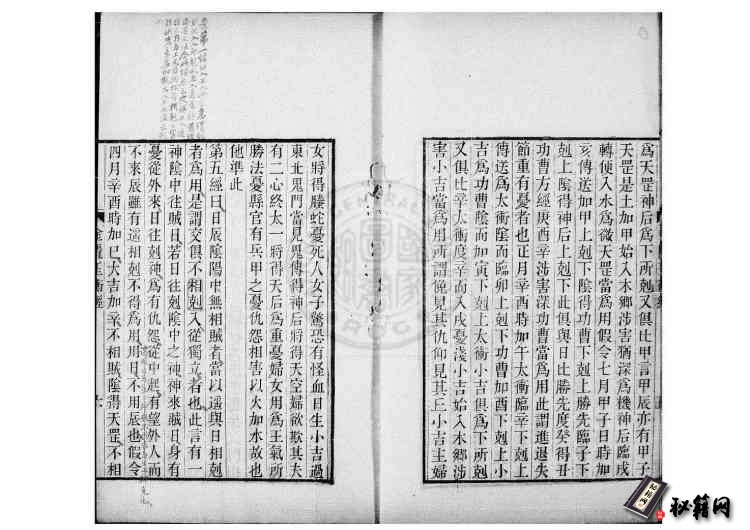 為天罡神后為下所剋又俱比甲言甲辰亦有甲子
天罡是土加甲始入木鄉涉害猶深為機神后臨戌
轉使入水為微天罡當為用假令七月甲子日時加
亥傳送加甲上剋下陰得功曹下剋上勝先臨子下
剋上陰得神后上剋下此俱與日比勝先度癸得丑
功曹方經庚酉辛涉害深功曹當為用此謂進退失
節重有憂者也正月辛酉時加午太衝臨辛下剋上
傳送為功曹陰而臨卯上剋下功曹加酉下剋上小
吉為功曹陰而加寅下剋上太衝小吉俱為下所剋
又俱比辛太衝度辛而入戌憂淺小吉始入木鄉涉
害小吉當為用所謂俛見其仇仰見其丘小吉主婦
女將得螣蛇憂死人女子驚恐有怪血日生小吉過
東北鬼門當見鬼傳得神后將得天空婦欲欺其夫
有二心終太一將得天后為重憂婦女用為王氣所
勝法憂縣官有兵甲之憂仇怨相害以火加水故也
他準此
第五經曰日辰陰陽中無相賊者當以遥與日相剋
者為用是謂交俱不相剋入從獨立者也此言有一
神陰中往賊日若日往剋陰中之神神來賊日身有
憂從外來日往剋神為有仇怨從中起有望外人而
不來辰雖有遥相剋不得為用用日不用辰也假令
四月辛酉時加巳大吉加辛不相賊陰得天罡不相
秘籍网